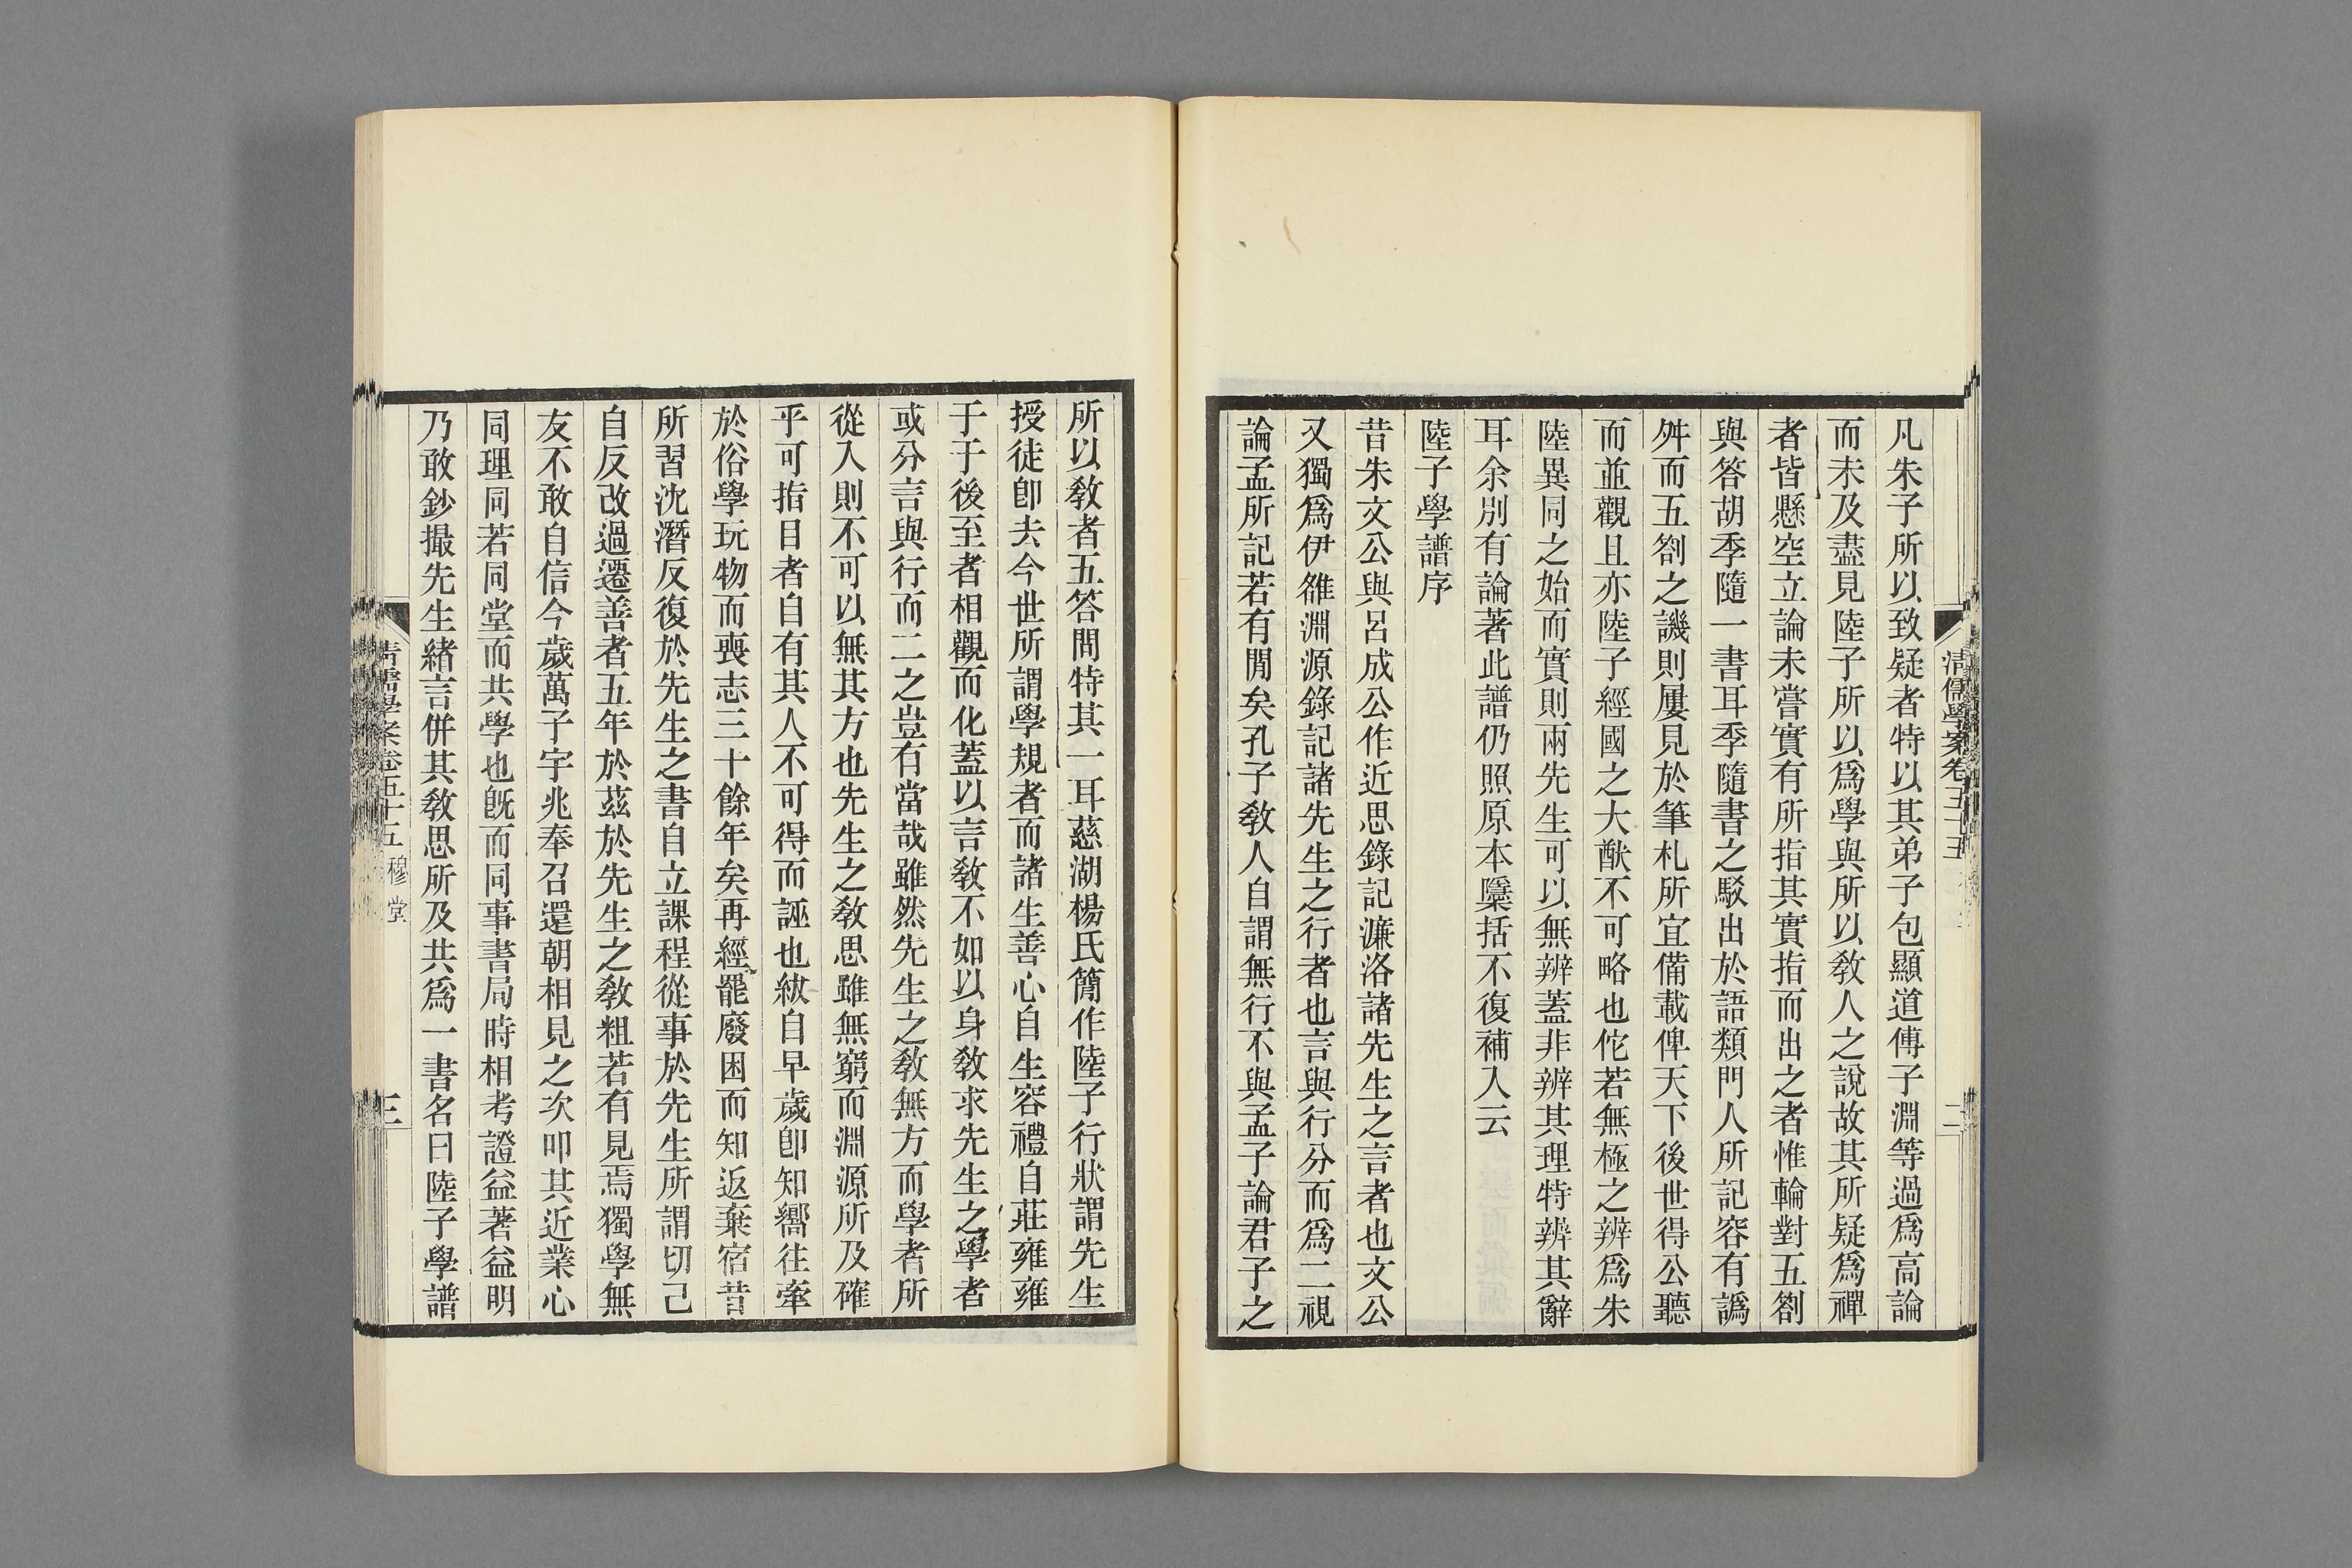 清儒學案卷五十五
二
凡朱子所以致疑者特以其弟子包顯道傅子淵等過爲高論
而未及盡見陸子所以爲學與所以敎人之說故其所疑爲禪
者皆懸空立論未嘗實有所指其實指而出之者惟輪對五劄
與答胡季隨一書耳季隨書之駁出於語類門人所記容有譌
舛而五劄之譏則屢見於筆札所宜備載俾天下後世得公聽
而並觀且亦陸子經國之大猷不可略也佗若無極之辨爲朱
陸異同之始而實則兩先生可以無辨蓋非辨其理特辨其辭
耳余別有論著此譜仍照原本隱括不復補入云
陸子學譜序
昔朱文公與呂成公作近思錄記濂洛諸先生之言者也文公
又獨爲伊雒淵源錄記諸先生之行者也言與行分而爲二視
論孟所記若有閒矣孔子敎人自謂無行不與孟子論君子之
所以敎者五答問特其一耳慈湖楊氏簡作陸子行狀謂先生
授徒卽去今世所謂學規者而諸生善心自生容禮自莊雍雍
于于後至者相觀而化蓋以言敎不如以身敎求先生之學者
或分言與行而二之豈有當哉雖然先生之敎無方而學者所
從入則不可以無其方也先生之敎思雖無窮而淵源所及確
乎可指目者自有其人不可得而誣也紱自早歲卽知嚮往牽
於俗學玩物而喪志三十餘年矣再經罷廢困而知返棄宿昔
所習沈潛反復於先生之書自立課程從事於先生所謂切己
自反改過遷善者五年於茲於先生之敎粗若有見焉獨學無
友不敢自信今歲萬子宇兆奉召還朝相見之次叩其近業心
同理同若同堂而共學也旣而同事書局時相考證益著益明
乃敢鈔撮先生緖言併其敎思所及共爲一書名曰陸子學譜
清儒學案卷五十五 穆堂
三